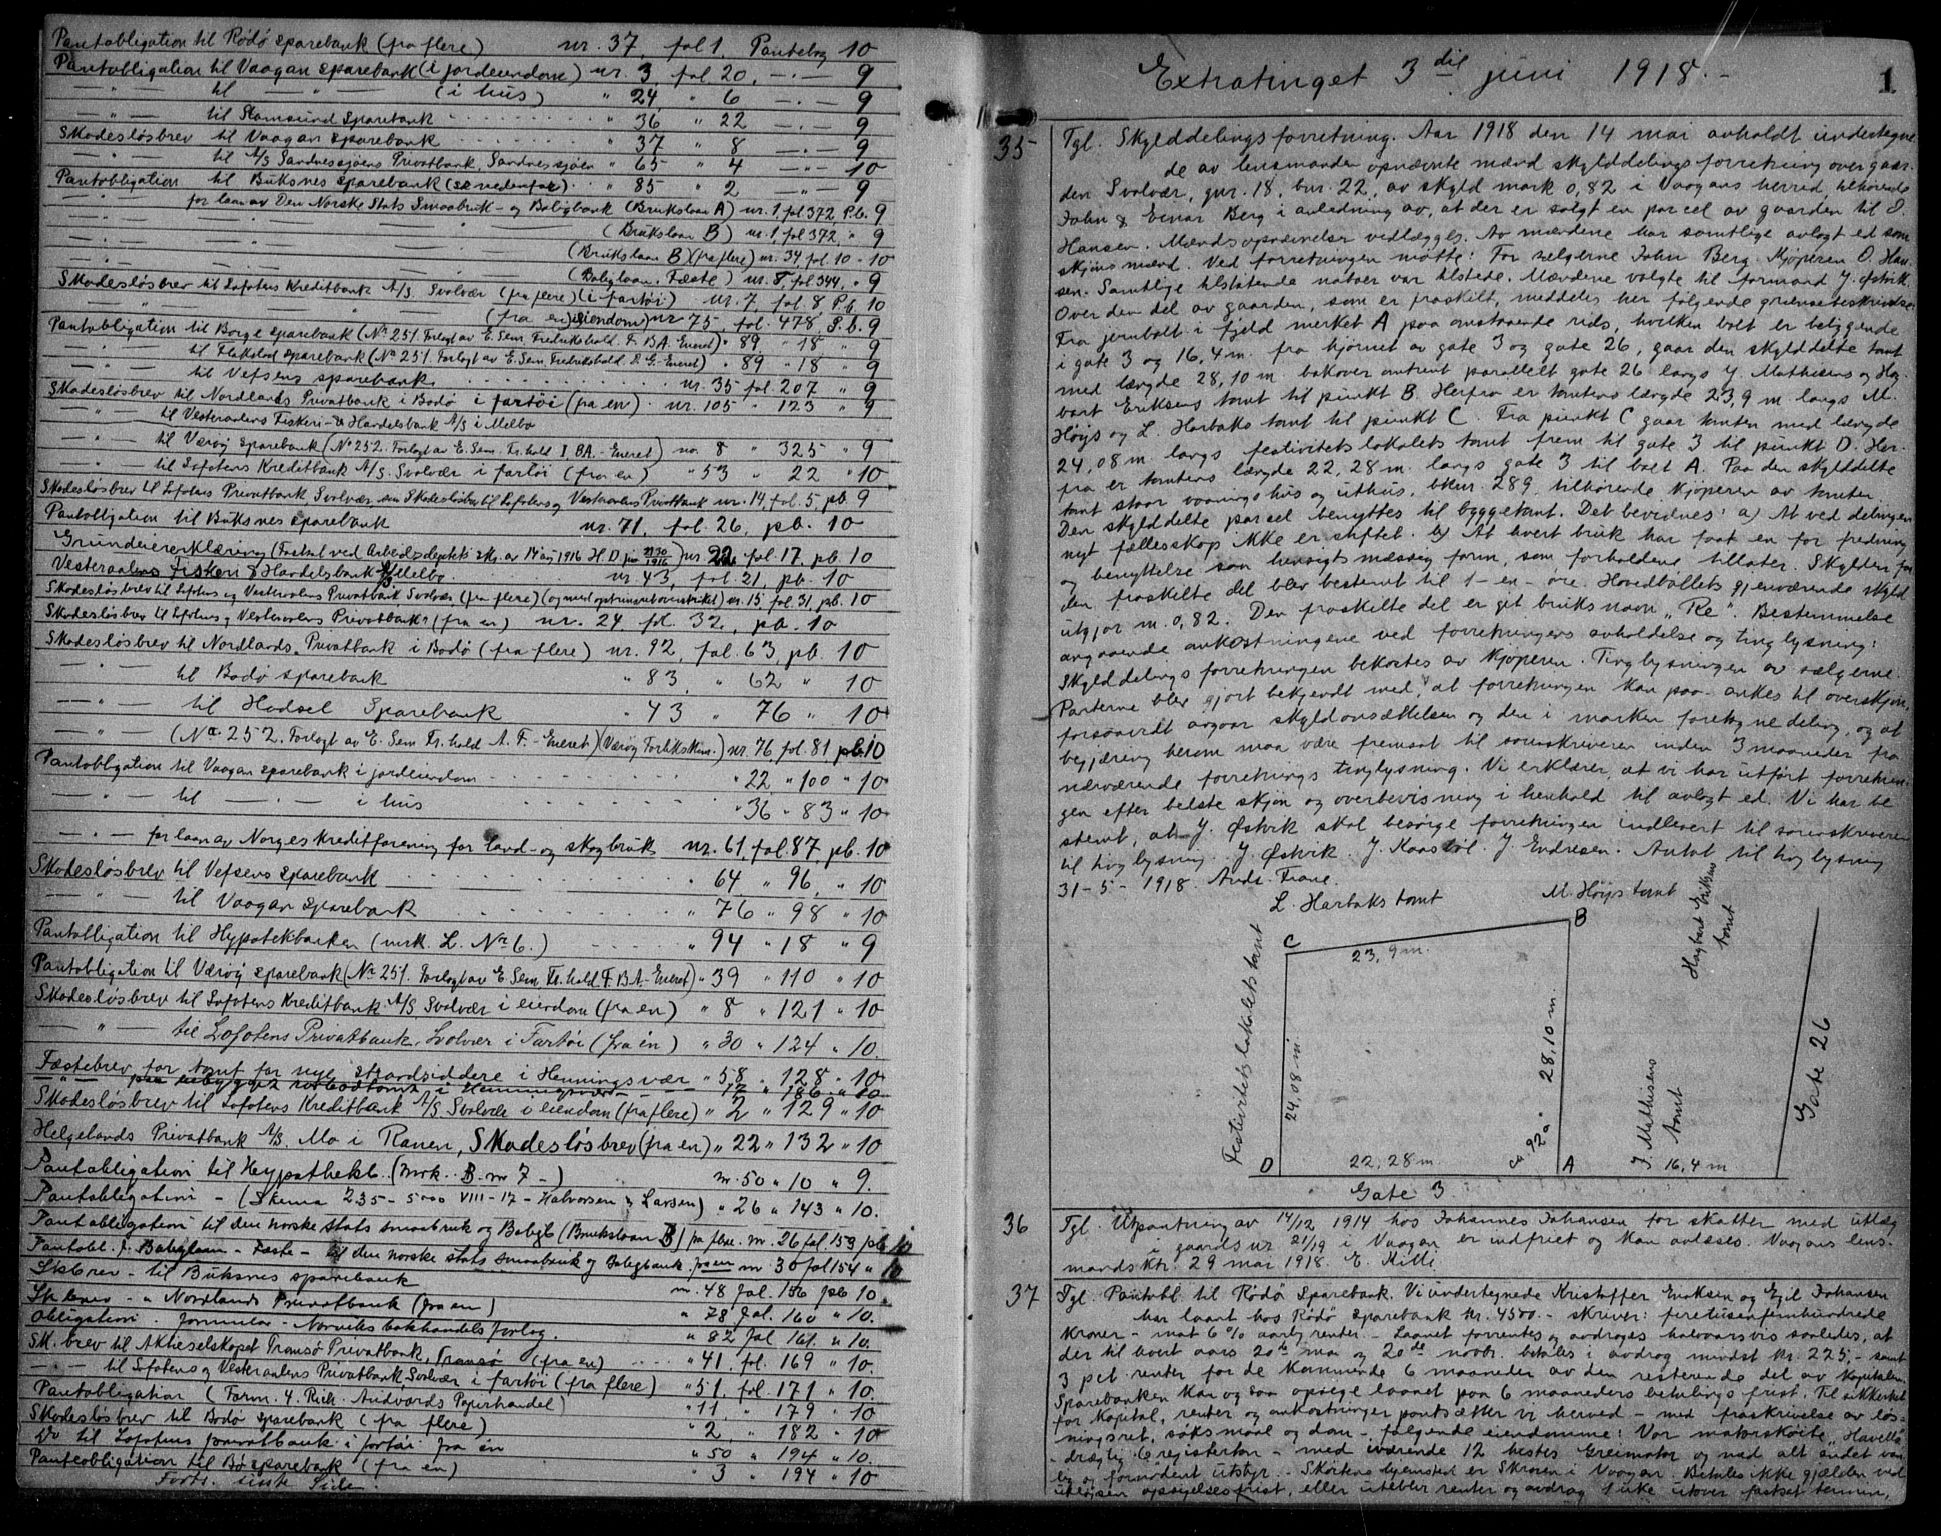 Pantobligation til Rødø sparebank (fra flere) nr. 37, fol 1, Pantebog 10
Pantobligation til Vaagan sparebank (i jordeiendom) nr. 3, fol 20, —"— 9
— " — til — " — (i hus) " 24, " 6 —"— 9
— " — til Stamsund Sparebank " 36 " 22 —"— 9
Skadesløsbrev til Vaagan sparebank " 37 " 8 —"— 9
— " — til A/S Sandnessjøens Privatbank, Sandnessjøen " 65 " 4 —"— 10
Pantobligation til Buksnes sparebank (se nedenfor) " 85 " 2 —"— 9
— " — for laan av Den Norske Stats Smaabruk- og Boligbank (Brukslaan A) nr. 1, fol 372 P.b. 9
— " — (Brukslaan B) nr. 1, fol 372, " 9
— " — (Brukslaan B) (fra flere) nr. 34 fol. 10 - 10
— " — (Boliglaan. Fæste) nr. 8, fol 344, " 9
Skadesløsbrev til Lofotens Kreditbank A/S Svolvær (fra flere) (i fartøi) nr. 7, fol. 8, P.b. 10
— " — (fra en) eiendom) nr 75, fol. 478, P.b. 9
Pantobligation til Borge sparebank (No 251. Forlagt av E. Sem Fredrikshald. F. B.A. Eneret) " 89 " 18 " 9
— " — til Flakstad sparebank (No 251 Forlagt av E. Sem Fredrikshald. F. G. Eneret) " 89 " 18 " 9
— " — til Vefsens sparebank nr. 35 fol. 207 " 9
Skadesløsbrev til Nordlands Privatbank i Bodø i fartøi (fra en) nr. 105 " 123 " 9
— " — til Vesteraalens Fiskeri- & Handelsbank A/S i Melbo
— " — til Værøy sparebank (No 252. Forlagt av E. Sem Fr.hald I. BA.- Eneret) no. 8 " 325 " 9
— " — til Lofotens Kreditbank A/S. Svolvær i fartøi (fra en) " 53 " 22 " 10
Skadesløsbrev til Lofotens Privatbank Svolvær, som Skadesløsbrev til Lofotens og Vesteraalens Privatbank nr. 14, fol. 5, pb. 9
Pantobligation til Buksnes sparebank nr. 71, fol. 26, pb. 10
Grundeiererklæring (Fastsat ved Arbeidsdeptets skr. av 14 aug 1916 H.D. jnr 2130/1916) nr 22 fol. 17, pb 10
Vesteraalens Fiskeri & Handelsbank A/S Melbo nr 43, fol. 21, pb. 10
Skadesløsbrev til Lofotens og Vesteraalens Privatbank Svolvær, (fra flere) nr. 15 fol. 31, pb. 10
Skadesløsbrev til Lofotens og Vesteraalens Privatbank (fra en) nr. 24, fol. 32, pb. 10
Skadesløsbrev til Nordlands Privatbank i Bodø (fra flere) nr. 92, fol. 63, pb. 10
— " — til Bodø sparebank " 83 " 62 " 10
— " — til Hadsel Sparebank " 43 " 76 " 10
— " — (No 252. Forlagt av E. Sem Fr.hald A. F. - Eneret) (Værøy Forlikskom.) nr. 76 fol. 81, pb. 10
Pantobligation til Vaagan sparebank i jordeiendom " 22 " 100 " 10
— " — til — " — i hus " 36 " 83 " 10
— " — for laan av Norges Kreditforening for land- og skogbruk nr. 61, fol. 87, pb. 10
Skadesløsbrev til Vefsens sparebank " 64 " 96, " 10
— " — til Vaagan sparebank " 76 " 98 " 10
Pantobligation til Hypotekbanken (mrk. L. No 6.) " 94 " 18 " 9
Pantobligation til Værøy sparebank (No 251. Forlagt av E Sem Fr.hald. F. B A - Eneret) " 39 " 110 " 10
Skadesløsbrev til Lofotens Kreditbank A/S, Svolvær i eiendom (fra en) " 8 " 121 " 10
— " — til Lofotens Privatbank, Svolvær i Fartøi (fra én) " 30 " 124 " 10.
Fæstebrev for tomt for nye strandsiddere i Henningsvær " 58 " 128 " 10
— " — paa ubebygget rorbodtomt i Henningsvær " 17 " 186 " 10
Skadesløsbrev til Lofotens Kreditbank A/S Svolvær i eiendom (fra flere) " 2 " 129 " 10
Helgelands Privatbank A/S. Mo i Ranen, Skadesløsbrev (fra en) " 22 " 132 " 10
Pantobligation til Hypothekb. (mrk. B. nr 7 -) nr. 50 " 10 " 9.
Pantobligation - (Skema 235 - 5000 VIII-17 - Halvorsen & Larsen) " 26 " 143 " 10.
Pantobligation til den norske stats smaabruk og Boligb (Brukslaan B) fra flere. nr. 26 fol. 153 pb 10
Pantobl. f. Boliglaan - Fæste - til den norske stats smaabruk og Boligbank fra en nr 30 fol 154 " 10
Sk.brev - til Buksnes sparebank nr. 48 fol. 156 pb 10.
Sk.brev - " Nordlands Privatbank (fra en) " 78 fol. 160 " 10.
Obligation. formular - Narviks bokhandels forlag. " 82 fol 161. " 10.
Sk. brev til Aktieselskapet Tromsø Privatbank, Tromsø (fra en) " 41, fol. 169 " 10.
— " — til Lofotens og Vesteraalens Privatbank Svolvær i fartøi (fra flere) " 51, fol. 171 " 10.
Pantobligation (Form. 4. Rich. Andvords Papirhandel) " 11 " 179 " 10
Skadesløsbrev til Bodø sparebank (fra flere) " 2 " 182 " 10
Do til Lofotens privatbank i fartøi fra én " 50 " 194 " 10.
Panteobligation til Bø sparebank (fra en) " 3 " 194 " 10
Forts. siste Side.
Extratinget 3die juni 1918.-
1
35 Tgl. Skylddelingsforretning. Aar 1918 den 14 mai avholdt undertegne
de av lensmanden opnævnte mænd skylddelingsforretning over gaar-
den Svolvær, gnr. 18, bnr. 22, av skyld mark 0,82 i Vaagans herred, tilhørende
John & Einar Berg i anledning av, at der er solgt en parcel av gaarden til O.
Hansen. Mændsopnævnelse vedlægges. Av mændene har samtlige avlagt ed som
skjønsmænd. Ved forretningen møtte: For selgerne John Berg. Kjøperen O. Han
sen. Samtlige tilstøtende naboer var tilstede. Mændene valgte til formand J. Østvik.
Over den del av gaarden, som er fraskilt, meddeles her følgende grænsebeskrivelse
Fra jernbolt i fjeld merket A paa omstaaende rids, hvilken bolt er beliggende
i gate 3 og 16,4 m. fra hjørnet av gate 3 og gate 26, gaar den skylddelte tomt
med længde 28,10 m. bakover omtrent parallelt gate 26 langs J. Mathisens og Hag-
bart Eriksens tomt til punkt B. Herfra er tomtens længde 23,9 m. langs M.
Høyjs og L. Harbaks tomt til punkt C. Fra punkt C gaar tomten med længde
24,08 m. langs festivitetslokalets tomt frem til gate 3 til punkt D. Her-
fra er tomtens længde 22,28 m. langs gate 3 til bolt A. Paa den skylddelte
tomt staar vaaningshus og uthus, bknr. 289, tilhørende kjøperen av tomten.
Den skylddelte parcel benyttes til byggetomt. Det bevidnes: a) At ved delingen
nyt fællesskap ikke er stiftet. b) At hvert bruk har faat en for fredning
og benyttelse saa hensigtsmæssig form, som forholdene tillater. Skylden for
den fraskilte del blev bestemt til 1- en- øre. Hovedbølets gjenværende skyld
utgjør m. 0,82. Den fraskilte del er git bruksnavn "Re". Bestemmelse
angaaende omkostningene ved forretningens avholdelse og tinglysning:
Skylddelingsforretningen bekostes av kjøperen. Tinglysningen av sælgerne.
Parterne blev gjort bekjendt med, at forretningen kan paa-ankes til overskjøn,
forsaavidt angaar skyldansættelsen og den i marken foretagne deling, og at
begjæring herom maa være fremsat til sorenskriveren inden 3 maaneder fra
nærværende forretnings tinglysning. Vi erklærer, at vi har utført forretnin-
gen efter bedste skjøn og overbevisning i henhold til avlagt ed. Vi har be
stemt, at J. Østvik skal besørge forretningen indlevert til sorenskriveren
til tinglysning. J. Østvik. J. Kaasbøl. J. Endresen. Antat til tinglysning
31-5-1918. Ands. Frane.
L. Harbaks tomt
M. Høyjs tomt
Hagbart Eriksens
tomt
C
B
23,9 m.
Festivitetslokalets tomt
24,08 m.
28,10 m.
ca. 92°
J. Mathisens
tomt
Gate 26
D
22,28 m.
A
16,4 m.
Gate 3.
36 Tgl. Utpantning av 14/12 1914 hos Johannes Johansen for skatter med utlæg
i gaards nr 21/19 i Vaagan er indfriet og kan avlæses. Vaagans lens-
mandsktr. 29 mai 1918. E. Killi.
37 Tgl. Pantobl. til Rødø Sparebank. Vi undertegnede Kristoffer Enoksen og Egil Johansen
har laant hos Rødø Sparebank kr. 4500.- skriver: firetusenfemhundrede
kroner - mot 6% aarlig renter - Laanet forrentes og avdrages halvaarsvis saaledes, at
der til hvert aars 20de mai og 20de novbr. betales i avdrag mindst kr. 225,- samt
3 pct. renter for de kommende 6 maaneder av den resterende del av kapitalen.
Sparebanken kan ogsaa opsige laanet paa 6 maaneders betalingsfrist. Til sikkerhet
for kapital, renter og omkostninger pantsætter vi herved - med fraskrivelse av løs-
ningsret, søksmaal og dom -, følgende eiendomme: Vor motorskøite "Havella"
- drægtig 6 registerton - med iværende 12 hestes Greimotor og med alt andet væ
og formodent utstyr. - Skøitens hjemsted er Skroven i Vaagan. Betales ikke gjælden ved
utløpen opsigelsesfrist, eller utebliver renter og avdrag 1 uke utover fastsat termin,